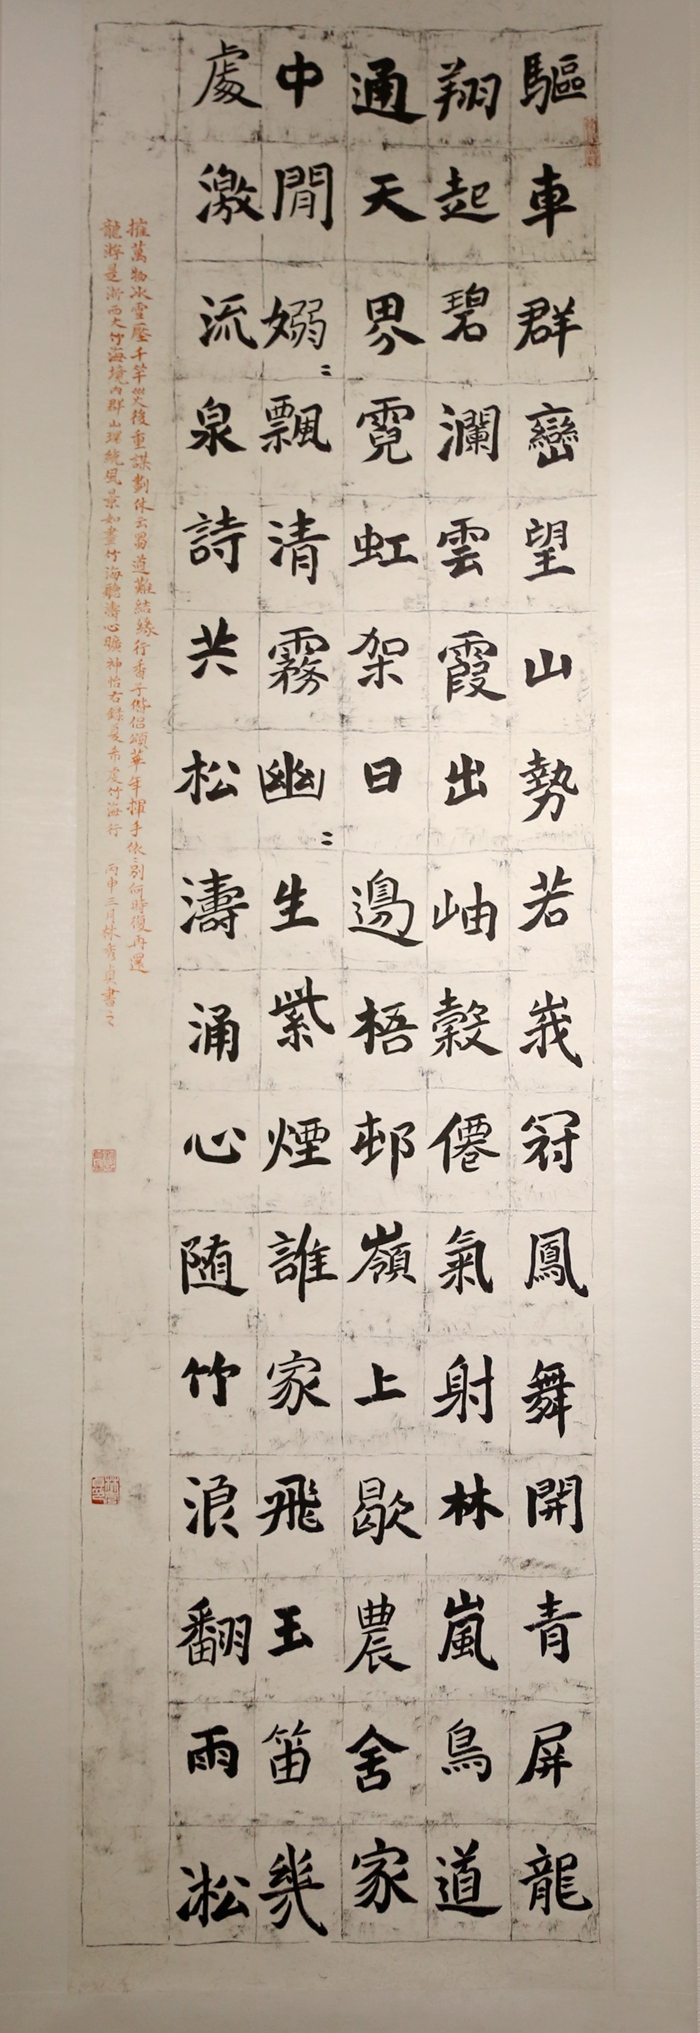 驅車群巒望山勢若峩冠鳳舞開青屏龍
翔起碧瀾雲霞出岫縠僊氣射林嵐鳥道
通天界霓虹架日邊梧邨嶺上歇農舍家
中閒嫋〻飄清霧幽〻生紫煙誰家飛玉笛幾
處激流泉詩共松濤涌心随竹浪翻雨凇
摧萬物冰雪壓千竿災後重謀劃休云蜀道難結緣行香子偕侶頌華年揮手依〻別何時復再還
龍游是浙西大竹海境内群山環繞風景如畫竹海聽濤心曠神怡右錄夏赤虔竹海行 丙申三月林秀貞書之